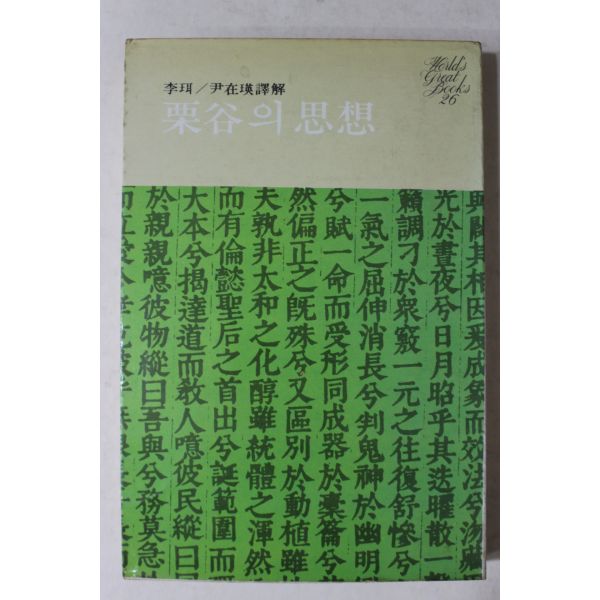 World's
Great
Books
26
李珥/尹在瑛譯解
栗谷의 思想
其相因爰成象而效法兮
光於晝夜兮日月昭乎其迭曜散一
籟調刁於衆竅一元之往復舒慘兮
一氣之屈伸消長兮判鬼神於幽明
兮賦一命而受形同成器於橐籥兮
然偏正之旣殊兮又區別於動植雖
夫孰非太和之化醇雖統體之渾然
而有倫懿聖后之首出兮誕範圍而
大本兮揭達道而敎人噫彼民縱曰
於親親噫彼物縱曰吾與兮務莫急